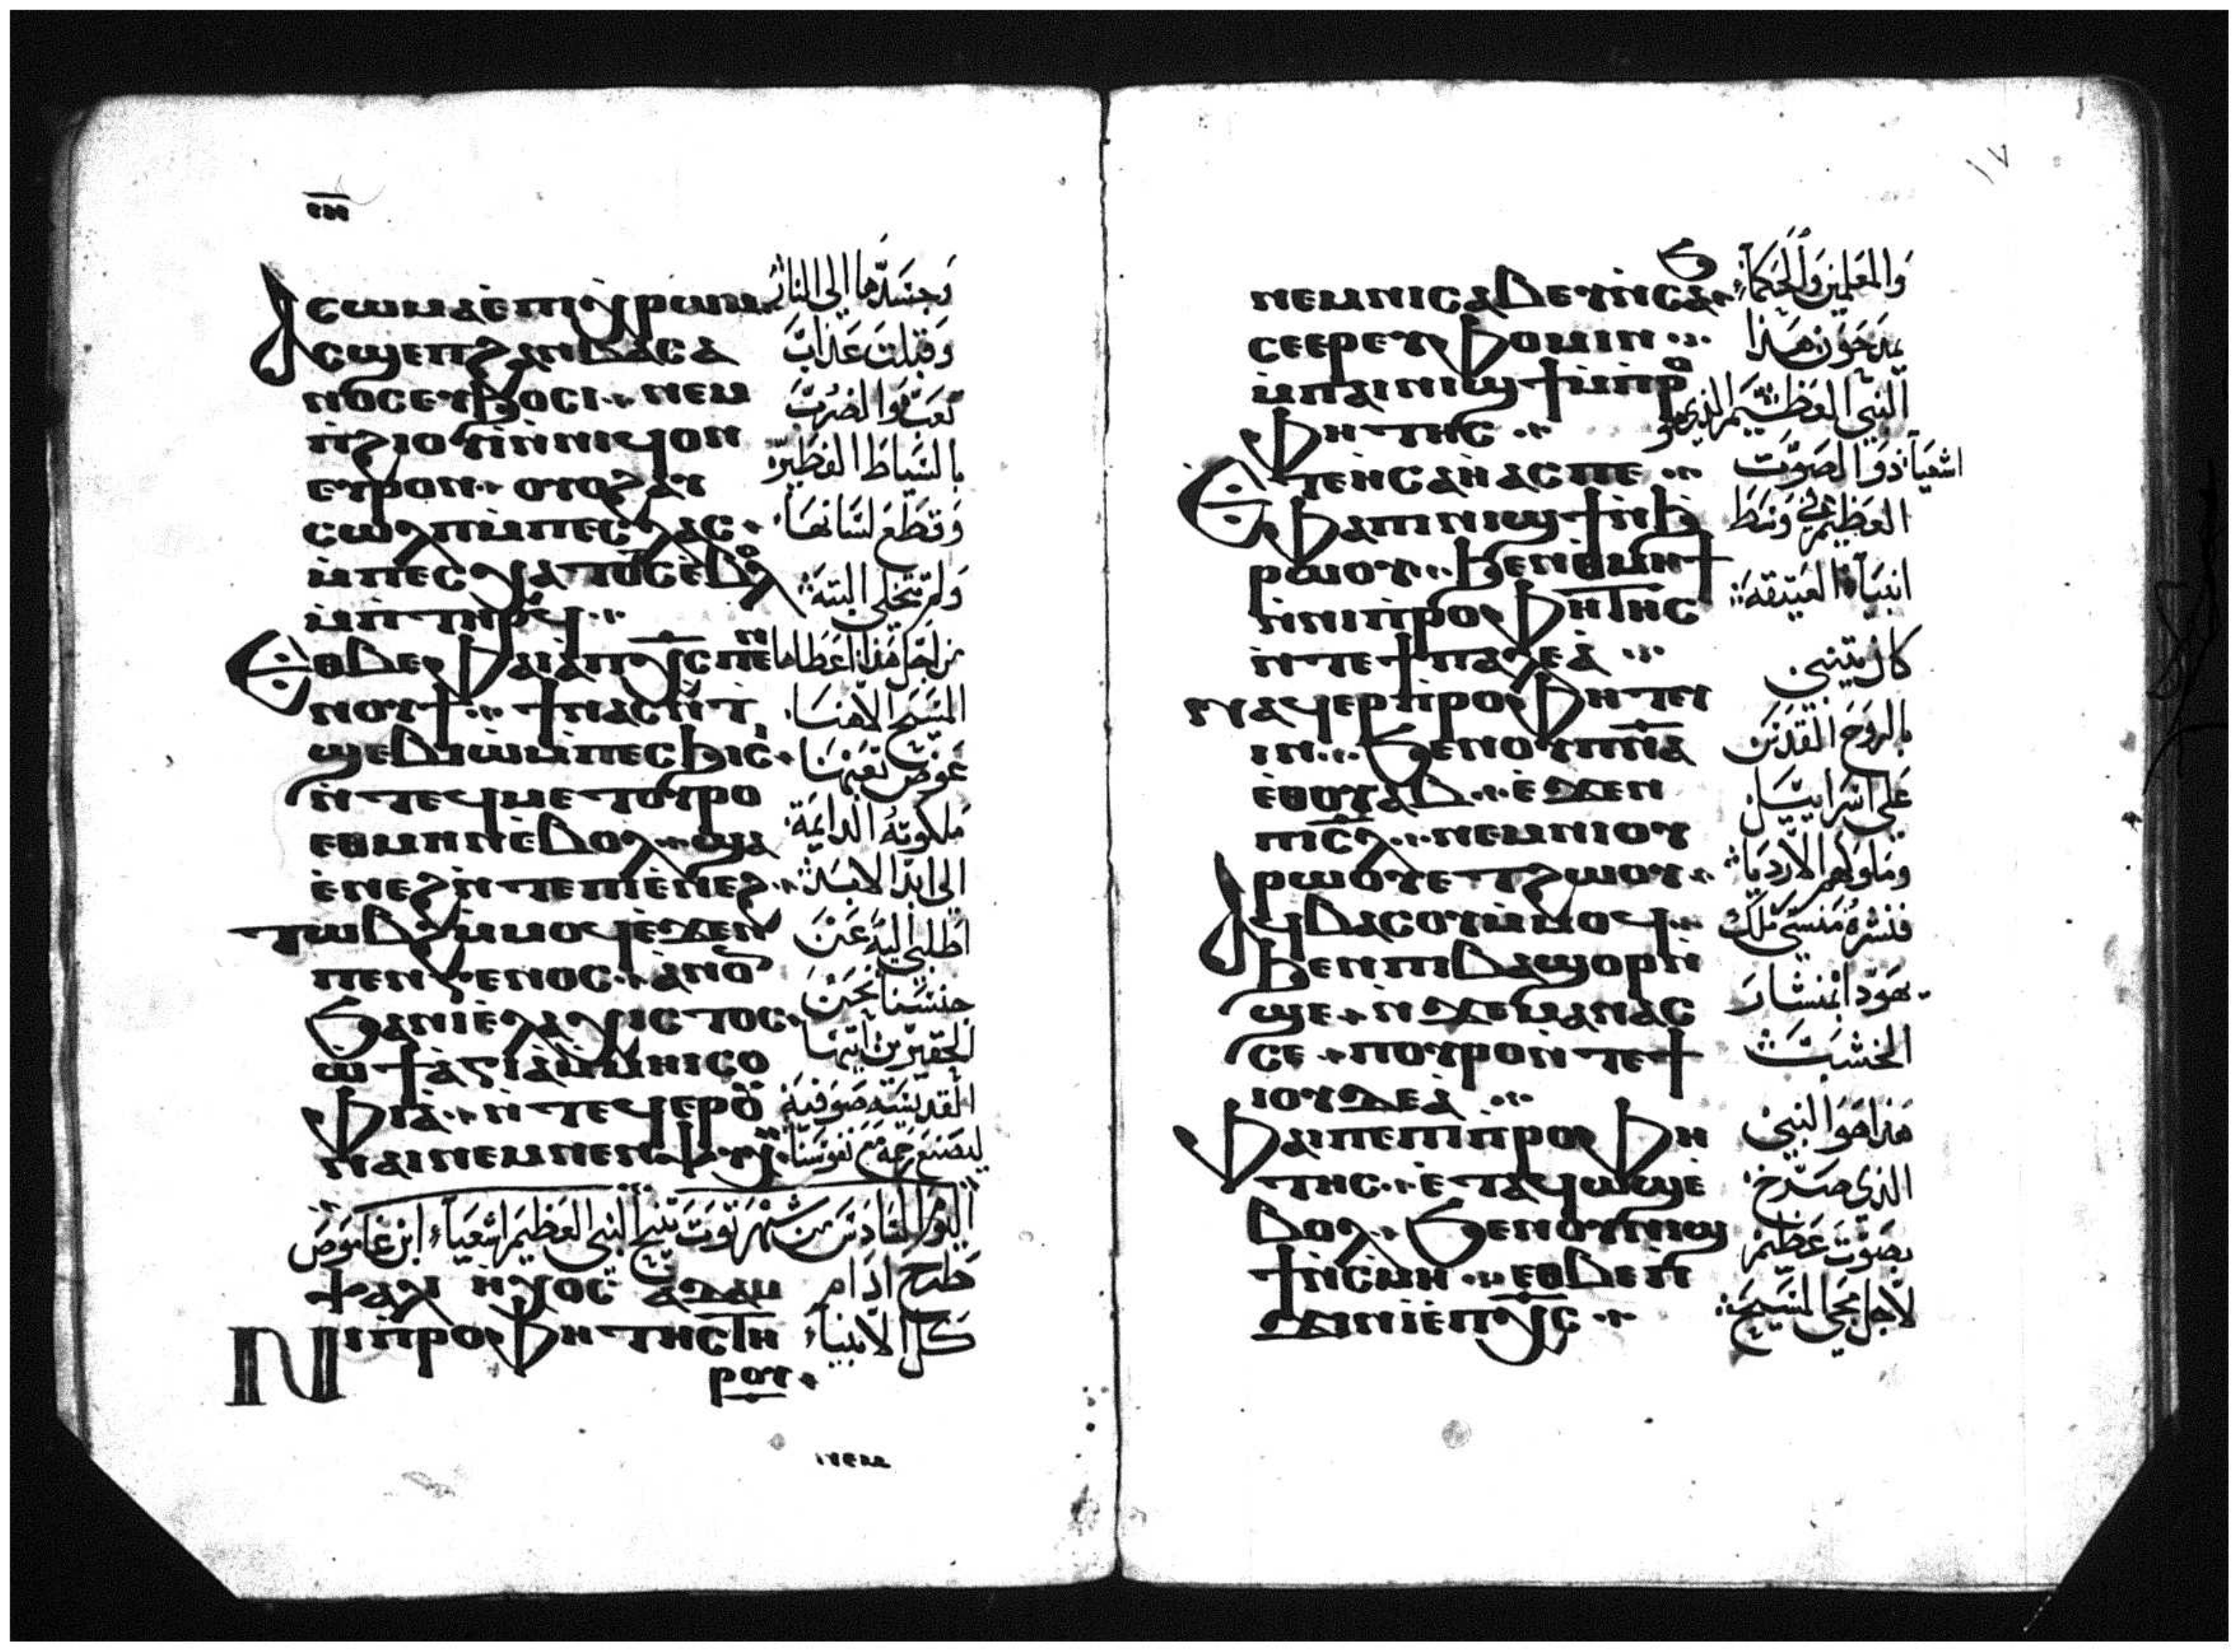 ⲥⲱⲙⲁⲉⲡⲓⲭⲣⲱⲙ
ⲁⲥϣⲉⲡϩⲁⲛⲃⲁⲥⲁ
ⲛⲟⲥⲉⲩϧⲟⲥⲓ ⲛⲉⲙ
ⲛ̀ϩⲓⲟⲩⲓⲛ̀ⲛⲓϥⲟⲛ
ⲥⲱⲗⲡⲙ̀ⲡⲉⲥⲗⲁⲥ
ⲙ̀ⲡⲉⲥⲭⲁⲧⲟⲥⲉⲃⲟⲗ
ⲙ̀ⲡⲧⲏⲣϥ
ⲉⲑⲃⲉⲫⲁⲓⲁⲡⲭ̅ⲥ̅ⲡⲉⲛ
ⲛⲟⲩϯ ϯⲛⲁⲥ ⲛ̀ⲧ
ϣⲉⲃⲓⲱⲙ̀ⲡⲉⲥϧⲓⲥⲓ
ⲛ̀ⲧⲉϥⲙⲉⲧⲟⲩⲣⲟ
ⲉⲑⲙⲏⲛⲉⲃⲟⲗ ϣⲁ
ⲉ̀ⲛⲉϩⲛ̀ⲧⲉⲡⲓⲉ̀ⲛⲉϩ
ⲧⲱⲃϩⲙ̀ⲙⲟϥⲉ̀ϫⲉⲛ
ⲡⲉⲛⲅⲉⲛⲟⲥ ⲁⲛⲟⲛ
ϧⲁⲛⲓⲉⲗⲁⲭⲓⲥⲧⲟⲥ
ⲱϯⲁⲅⲓⲁⲙ̀ⲙⲏⲓⲥⲟ
ⲫⲓⲁ ⲛ̀ⲧⲉϥⲉⲣⲟⲩ
ⲛⲁⲓⲛⲉⲙⲛⲉⲛⲯⲩⲭⲏ
ⲯⲁⲗⲓ ⲏⲭⲟⲥ ⲁⲇⲁⲙ
ⲛⲓⲡⲣⲟⲫⲏⲧⲏⲥⲧⲏ
ⲣⲟⲩ
وجسدها الى النار
وقبلت عذاب
تعب والضرب
بالسياط الفطير
وقطع لسانها
ولم تتخلى البتة
من اجل هذا اعطاها
المسيح الاهنا
عوض تعبها
ملكوته الدايمة
الى ابد الابد
اطلبي اليه عن
جنسنا نحن
الحقيرين ايتها
القديسة صوفية
ليصنع رحمة مع نفوسنا
اليوم السادس من شهر توت تنيح النبي العظيم اشعياء ابن عاموص
طرح ادام
كل الانبياء
١٧
ⲛⲉⲙⲛⲓⲥⲁⲃⲉⲩⲛ̀ⲥⲁϧ
ⲥⲉⲉⲣⲉⲩⲫⲟⲙⲓⲛ
ⲙ̀ⲡⲁⲓⲛⲓϣϯⲙ̀ⲡⲣⲟ
ⲫⲏⲧⲏⲥ
ⲑⲫⲁⲡⲓⲛⲓϣϯⲛ̀ϧ
ⲣⲱⲟⲩ ϧⲉⲛⲑⲙⲏϯ
ⲛ̀ⲛⲓⲡⲣⲟⲫⲏⲧⲏⲥ
ⲛ̀ⲧⲉϯⲡⲁⲗⲉⲁ
ⲛⲁϥⲉⲣⲡⲣⲟⲫⲏⲧⲉⲩ
ⲓⲛ ϧⲉⲛⲟⲩⲡ̅ⲛ̅ⲁ̅
ⲉ̀ⲑⲟⲩⲁⲃ ⲉ̀ϫⲉⲛ
ⲡⲓⲥ̅ⲗ̅ ⲛⲉⲙⲛⲓⲟⲩ
ⲣⲱⲟⲩⲉⲧϩⲱⲟⲩ
ⲁϥⲃⲁⲥⲟⲩⲙ̀ⲙⲟϥ
ϧⲉⲛⲡⲓⲃⲁϣⲟⲩⲣⲛ̀
ϣⲉ ⲛ̀ϫⲉⲙⲁⲛⲁⲥ
ⲥⲉ ⲡⲟⲩⲣⲟⲛ̀ⲧⲉϯ
ⲓⲟⲩⲇⲉⲁ̀
ⲫⲁⲓⲡⲉⲡⲓⲡⲣⲟⲫⲏ
ⲧⲏⲥ ⲉ̀ⲧⲁϥⲱϣⲉ̀
ⲃⲟⲗ ϧⲉⲛⲟⲩⲛⲓϣ
ϯⲛ̀ⲥⲙⲏ ⲉⲑⲃⲉⲡ
ϫⲓⲛⲓⲉ̀ⲡⲭ̅ⲥ̅
والمعلمين والحكماء
يمدحون هذا
النبي العظيم الذي هو
اشعيا ذو الصوت
العظيم في وسط
انبياء العتيقة
كان يتنبى
بالروح القدس
على اسراييل
وملوكهم الاردياء
فنشره منسى ملك
يهودا بمنشار
الخشب
هذا هو النبي
الذي صرخ
بصوت عظيم
لاجل مجى المسيح